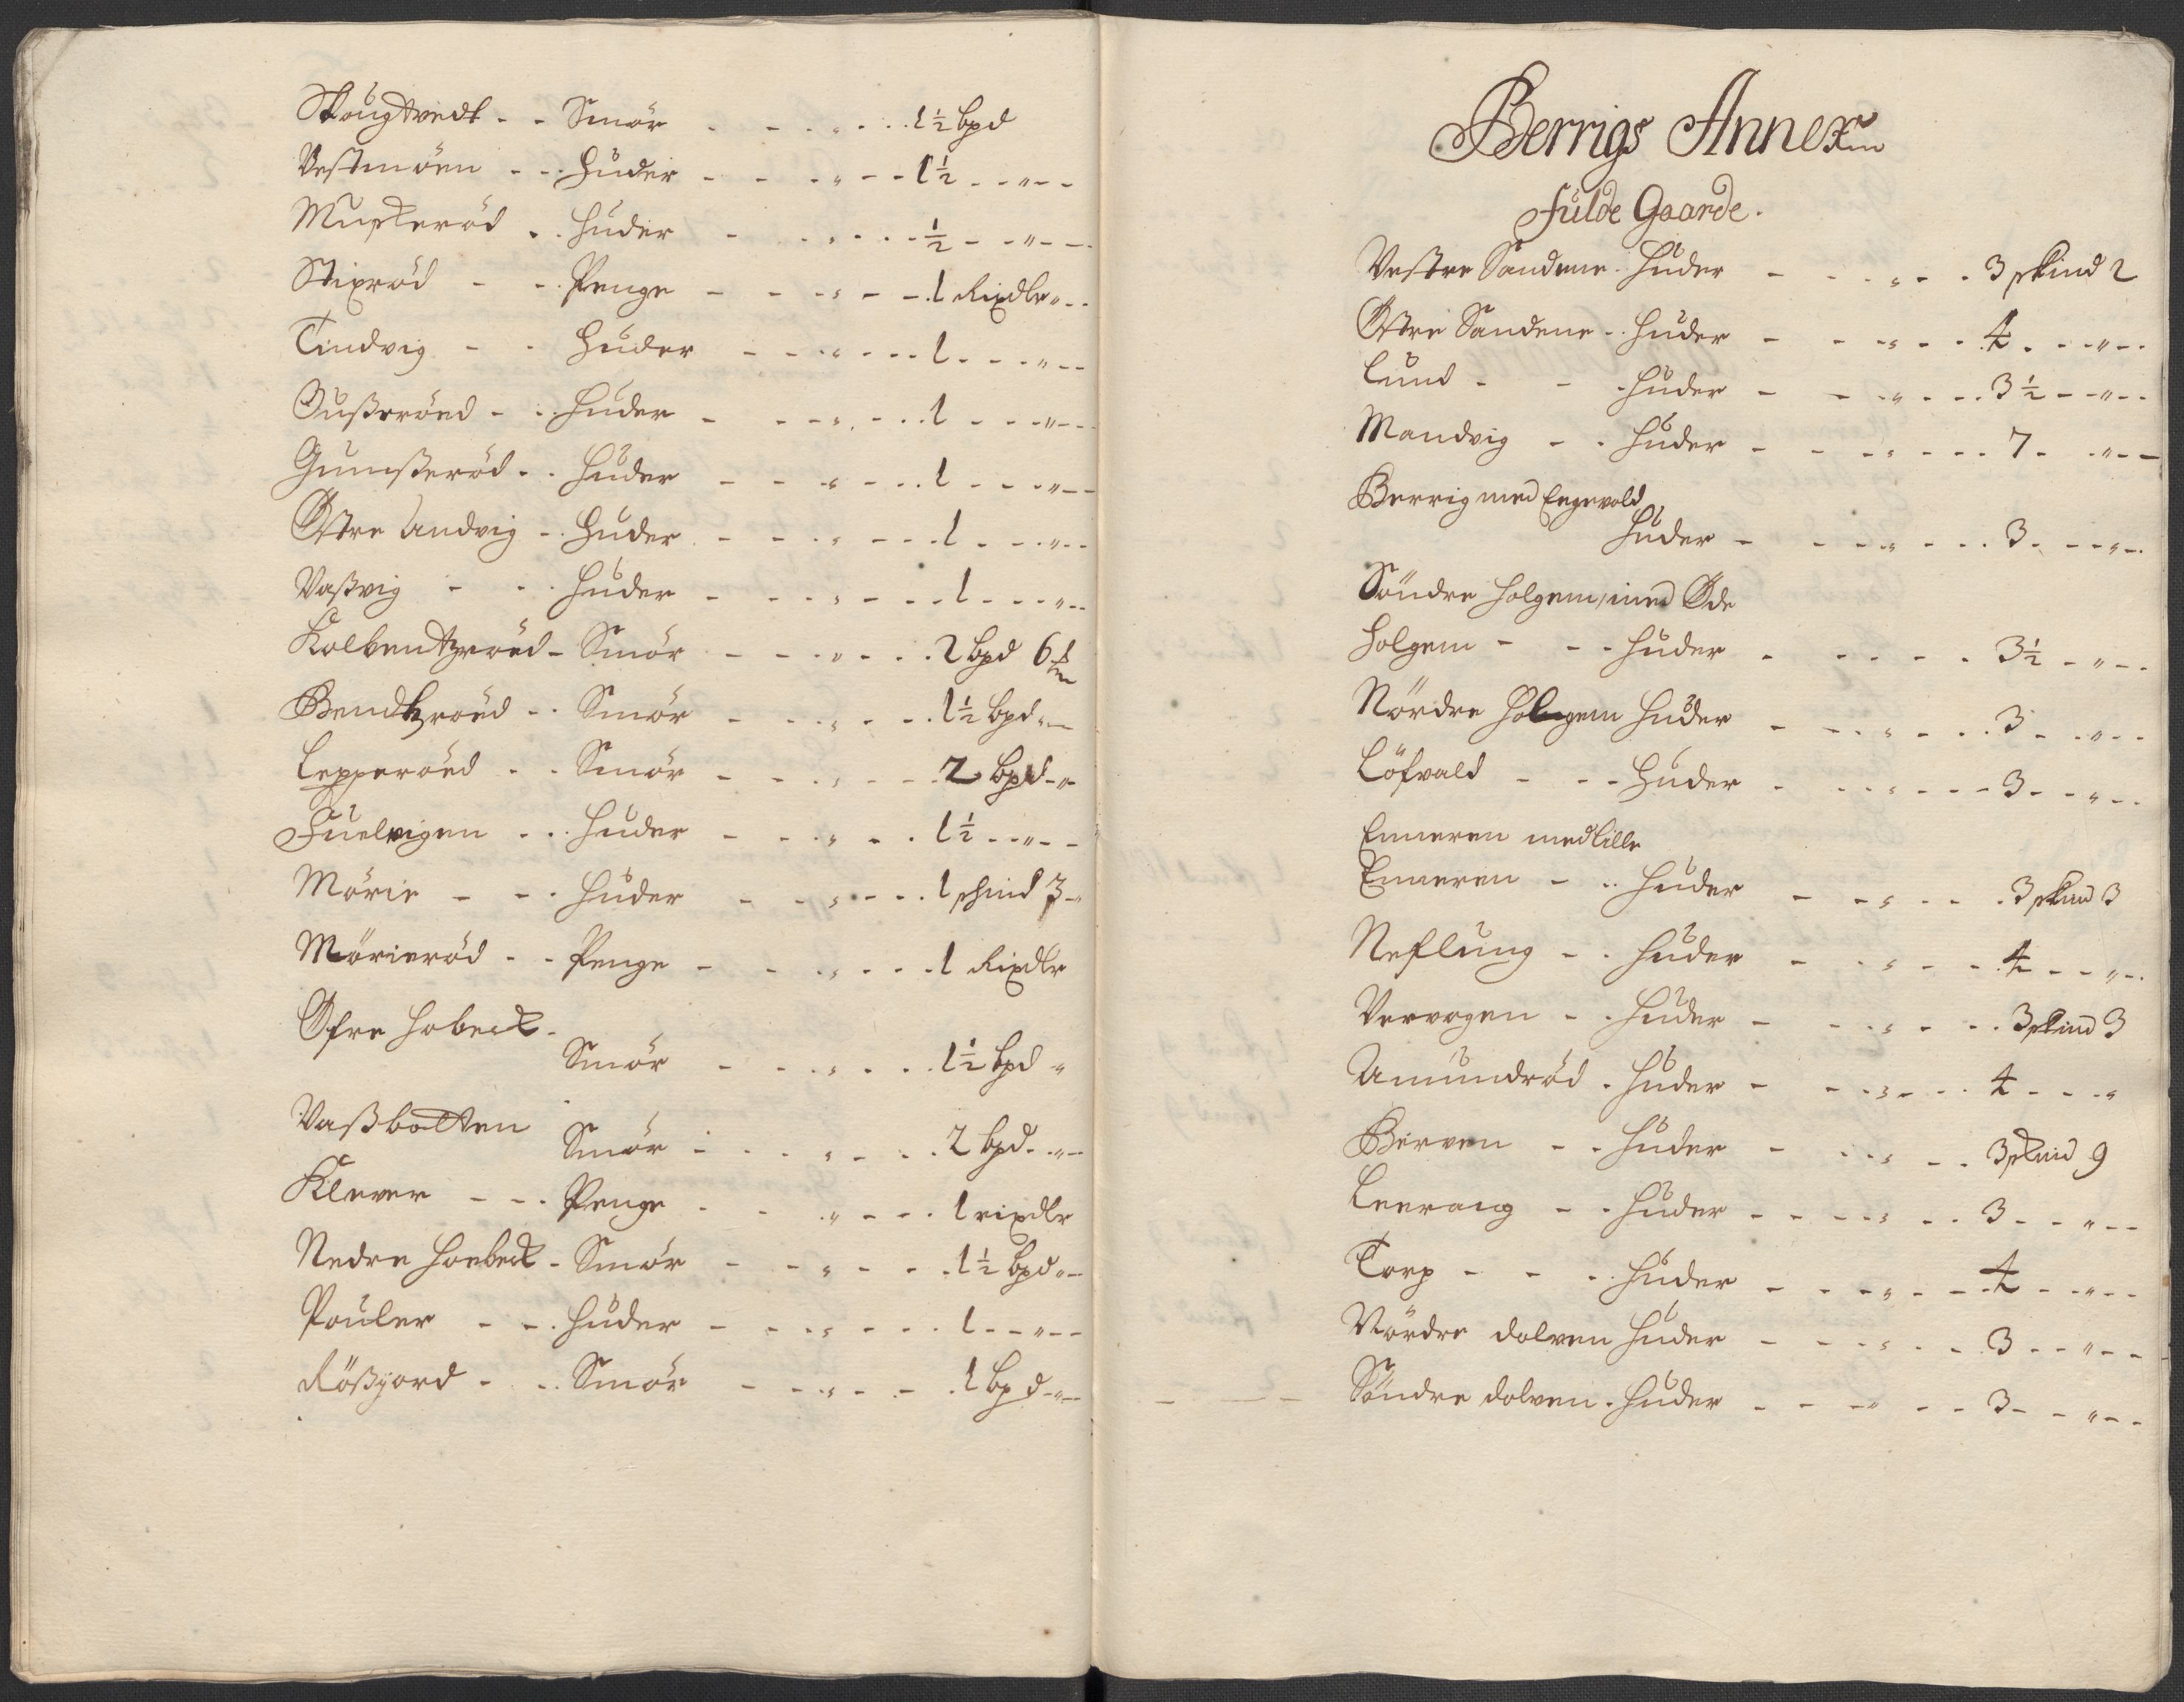 Skougtvedt - - Smör - - „ - - 1½ bpd
Vestmöen - - Huder - - „ - - 1½ - - „ - -
Muskeröd - - Huder - - „ - - ½ - - „ - -
Stixröd - - Penge - - „ - - 1 Rixdlr „ - -
Tindvig - - Huder - - „ - - 1 - - „ - -
Gusßröed - - Huder - - „ - - 1 - - „ - -
Gumßeröd - - Huder - - „ - - 1 - - „ - -
Östre Andvig - Huder - - „ - - 1 - - „ - -
Vaßvig - - Huder - - „ - - 1 - - „ - -
Kolbentzröed - Smör - - „ - - 2 bpd 6
Bendtzröed - - Smör - - „ - - 1½ bpd „ -
Lepperöed - - Smör - - „ - - 2 bpd - „ -
Fuelvigen - - Huder - - „ - - 1½ - - „ - -
Mörie - - Huder - - „ - - 1 skind 3 - „
Mörieröd - - Penge - - „ - - 1 Rixdlr
Öfre Hobeck -
Smör - - „ - - 1½ bpd „
Vaßbotten
Smör - - „ - - 2 bpd - „ -
Klever - - Penge - - „ - - 1 rixdlr
Nedre Hoebeck - Smör - - „ - - 1½ bpd „ -
Pouler - - Huder - - „ - - 1 - - „ - -
Rößjord - - Smör - - „ - - 1 bpd - „ -
Berrigs Annex
Fulde Gaarde.
Vestre Sandene - Huder - - „ - - 3 skind 2
Östre Sandene - Huder - - „ - - 4 - - „ - -
Lund - - Huder - - „ - - 3½ - - „ - -
Mandvig - - Huder - - „ - - 7 - „ - -
Berrig med Engevold
Huder - - „ - - 3 - - „ -
Söndre Holgem, med Öde
Holgem - - Huder - - - - 3½ - „ - -
Nördre Holgem Huder - - „ - - 3 - „ - -
Löfvald - - Huder - - „ - - 3 - - „ - -
Enneren med Lille
Enneren - - Huder - - „ - - 3 skind 3
Neflung - - Huder - - „ - - 4 - - „ -
Vervogen - - Huder - - „ - - 3 skind 3
Amundröd - Huder - - „ - - 4 - - „
Berven - - Huder - - „ - - 3 skind 9
Leeraig - - Huder - - „ - - 3 - - „ - -
Torp - - Huder - - „ - - 4 - - „ - -
Nördre Dolven Huder - - „ - - 3 - - „ - -
Söndre Dolven - Huder - - „ - - 3 - - „ - -